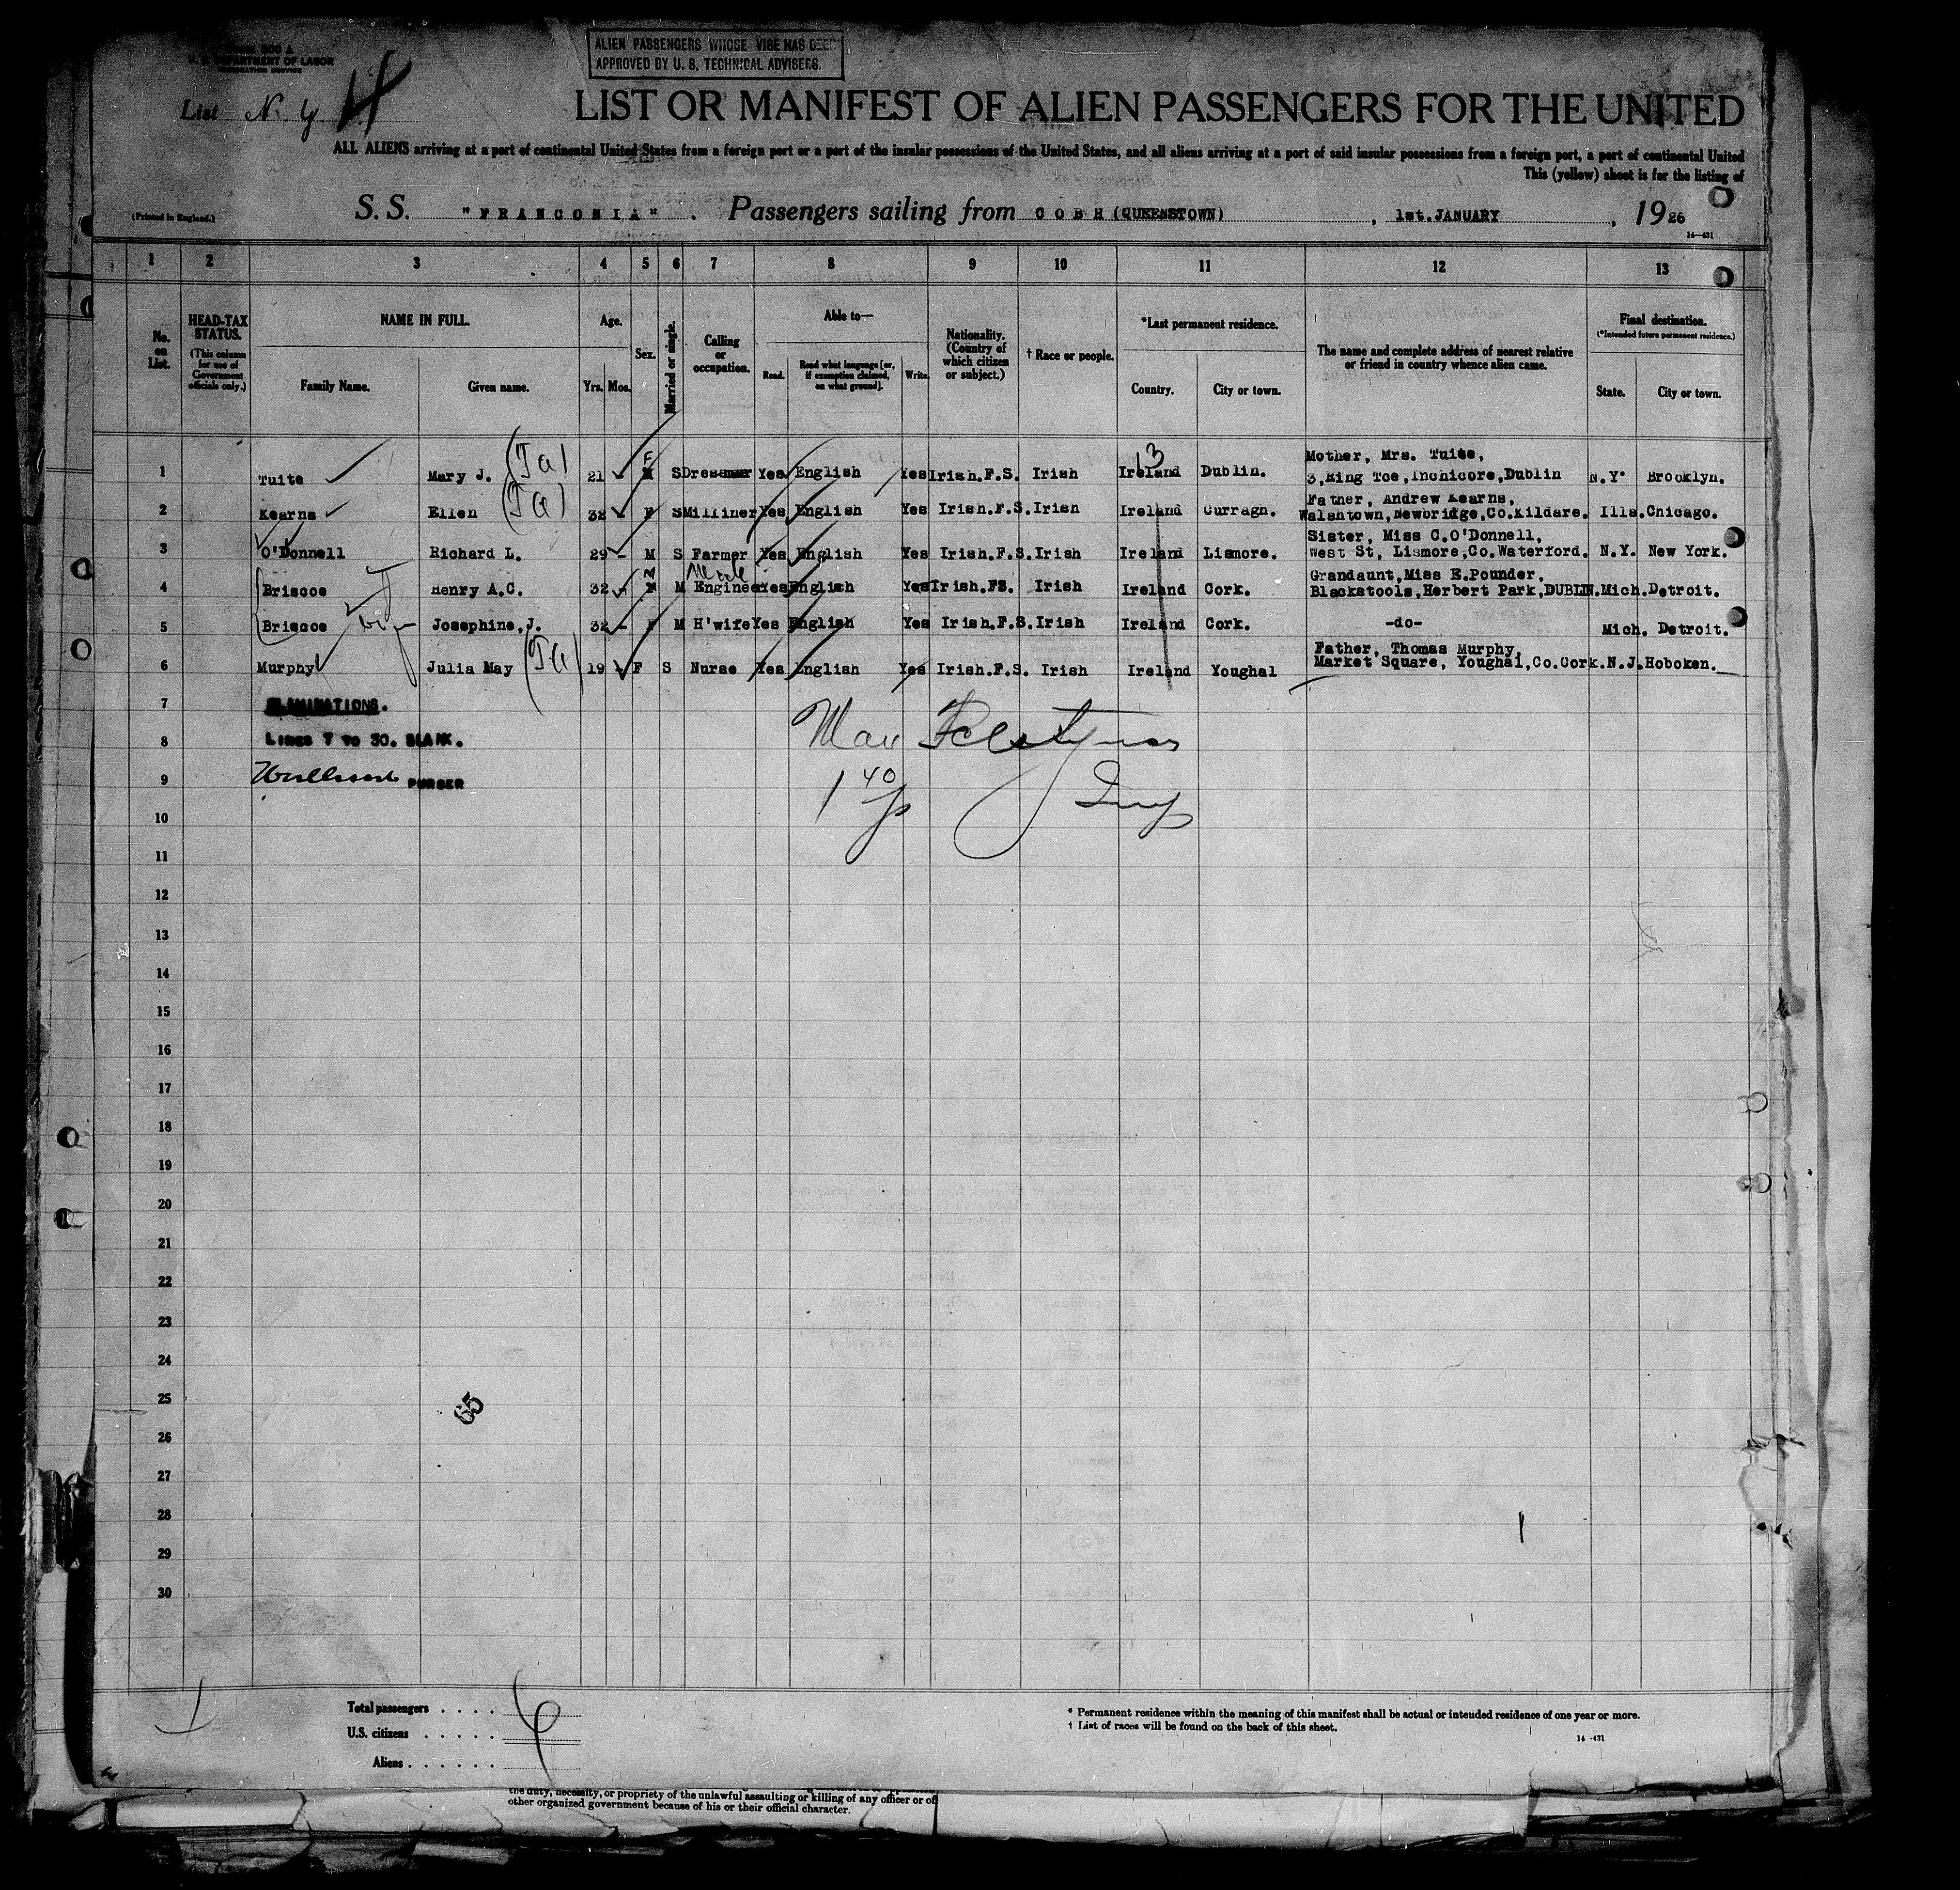 FORM 500 A
U. S. DEPARTMENT OF LABOR
IMMIGRATION SERVICE
ALIEN PASSENGERS WHOSE VISE HAS BEEN
APPROVED BY U. S. TECHNICAL ADVISERS.
List N. Y. 4
LIST OR MANIFEST OF ALIEN PASSENGERS FOR THE UNITED
ALL ALIENS arriving at a port of continental United States from a foreign port or a port of the insular possessions of the United States, and all aliens arriving at a port of said insular possessions from a foreign port, a port of continental United
This (yellow) sheet is for the listing of
(Printed in England.)
S. S. "FRANCONIA". Passengers sailing from COBH (QUEENSTOWN), 1st. JANUARY, 1926
14—431
1 2 3 4 5 6 7 8 9 10 11 12 13
No. on List.
HEAD-TAX STATUS.
(This column for use of Government officials only.)
NAME IN FULL.
Family Name. Given name.
Age.
Yrs. Mos.
Sex.
Married or single.
Calling or occupation.
Able to—
Read. Read what language [or, if exemption claimed, on what ground]. Write.
Nationality. (Country of which citizen or subject.)
† Race or people.
*Last permanent residence.
Country. City or town.
The name and complete address of nearest relative or friend in country whence alien came.
Final destination.
(*Intended future permanent residence.)
State. City or town.
13
Mother, Mrs. Tuite,
1 Tuite Mary J. (Ta) 21 F S Yes English Yes Irish.F.S. Irish Ireland Dublin. 3,Ring Tce,Inchicore,Dublin N.Y. Brooklyn.
Father, Andrew Kearns,
2 Kearns Ellen (Ta) 32 - F S Milliner Yes English Yes Irish.F.S. Irish Ireland Curragh. Walshtown,Newbridge,Co.Kildare. Ills. Chicago.
Sister, Miss C.O'Donnell,
3 O'Donnell Richard L. 29 - M S Farmer Yes English Yes Irish.F.S. Irish Ireland Lismore. West St, Lismore,Co.Waterford. N.Y. New York.
Grandaunt,Miss E.Pounder,
4 Briscoe Henry A.C. 32 M M Engineer Yes English Yes Irish.FS. Irish Ireland Cork. Blackstools,Herbert Park,DUBLIN. Mich. Detroit.
5 Briscoe Josephine,J. 32 - F M H'wife Yes English Yes Irish.F.S. Irish Ireland Cork. -do- Mich. Detroit.
Father, Thomas Murphy,
6 Murphy Julia May (Ta) 19 - F S Nurse Yes English Yes Irish.F.S. Irish Ireland Youghal Market Square, Youghal,Co.Cork. N.J. Hoboken.
7
8 Lines 7 to 30. BLANK.
9 PURSER
10
11
12
13
14
15
16
17
18
19
20
21
22
23
24
25
65
26
27
28
29
30
Total passengers . . . . 6
U.S. citizens . . . . .
Aliens . . . . . .
* Permanent residence within the meaning of this manifest shall be actual or intended residence of one year or more.
† List of races will be found on the back of this sheet.
14-431
the duty, necessity, or propriety of the unlawful assaulting or killing of any officer or of
other organized government because of his or their official character.